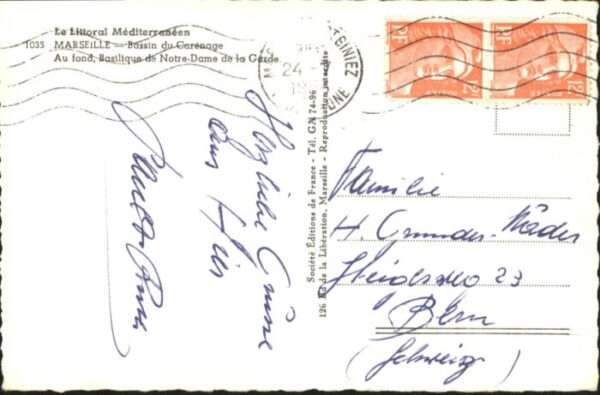 Le Littoral Méditerranéen
1033 MARSEILLE — Bassin du Carénage
Au fond, Basilique de Notre-Dame de la Garde
24
RF 12
RF 12
Société Editions de France - Tél. GA 74-96
126 de la Libération, Marseille - Reproduction interdite
Herzliche Grüsse
aus
Familie
H.
23
Bern
(Schweiz)